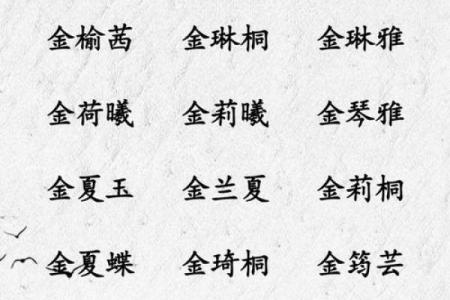 金榆茜 金琳桐 金琳雅
金荷曦 金莉曦 金琴雅
金夏玉 金兰夏 金莉桐
金夏蝶 金琦桐 金筠芸